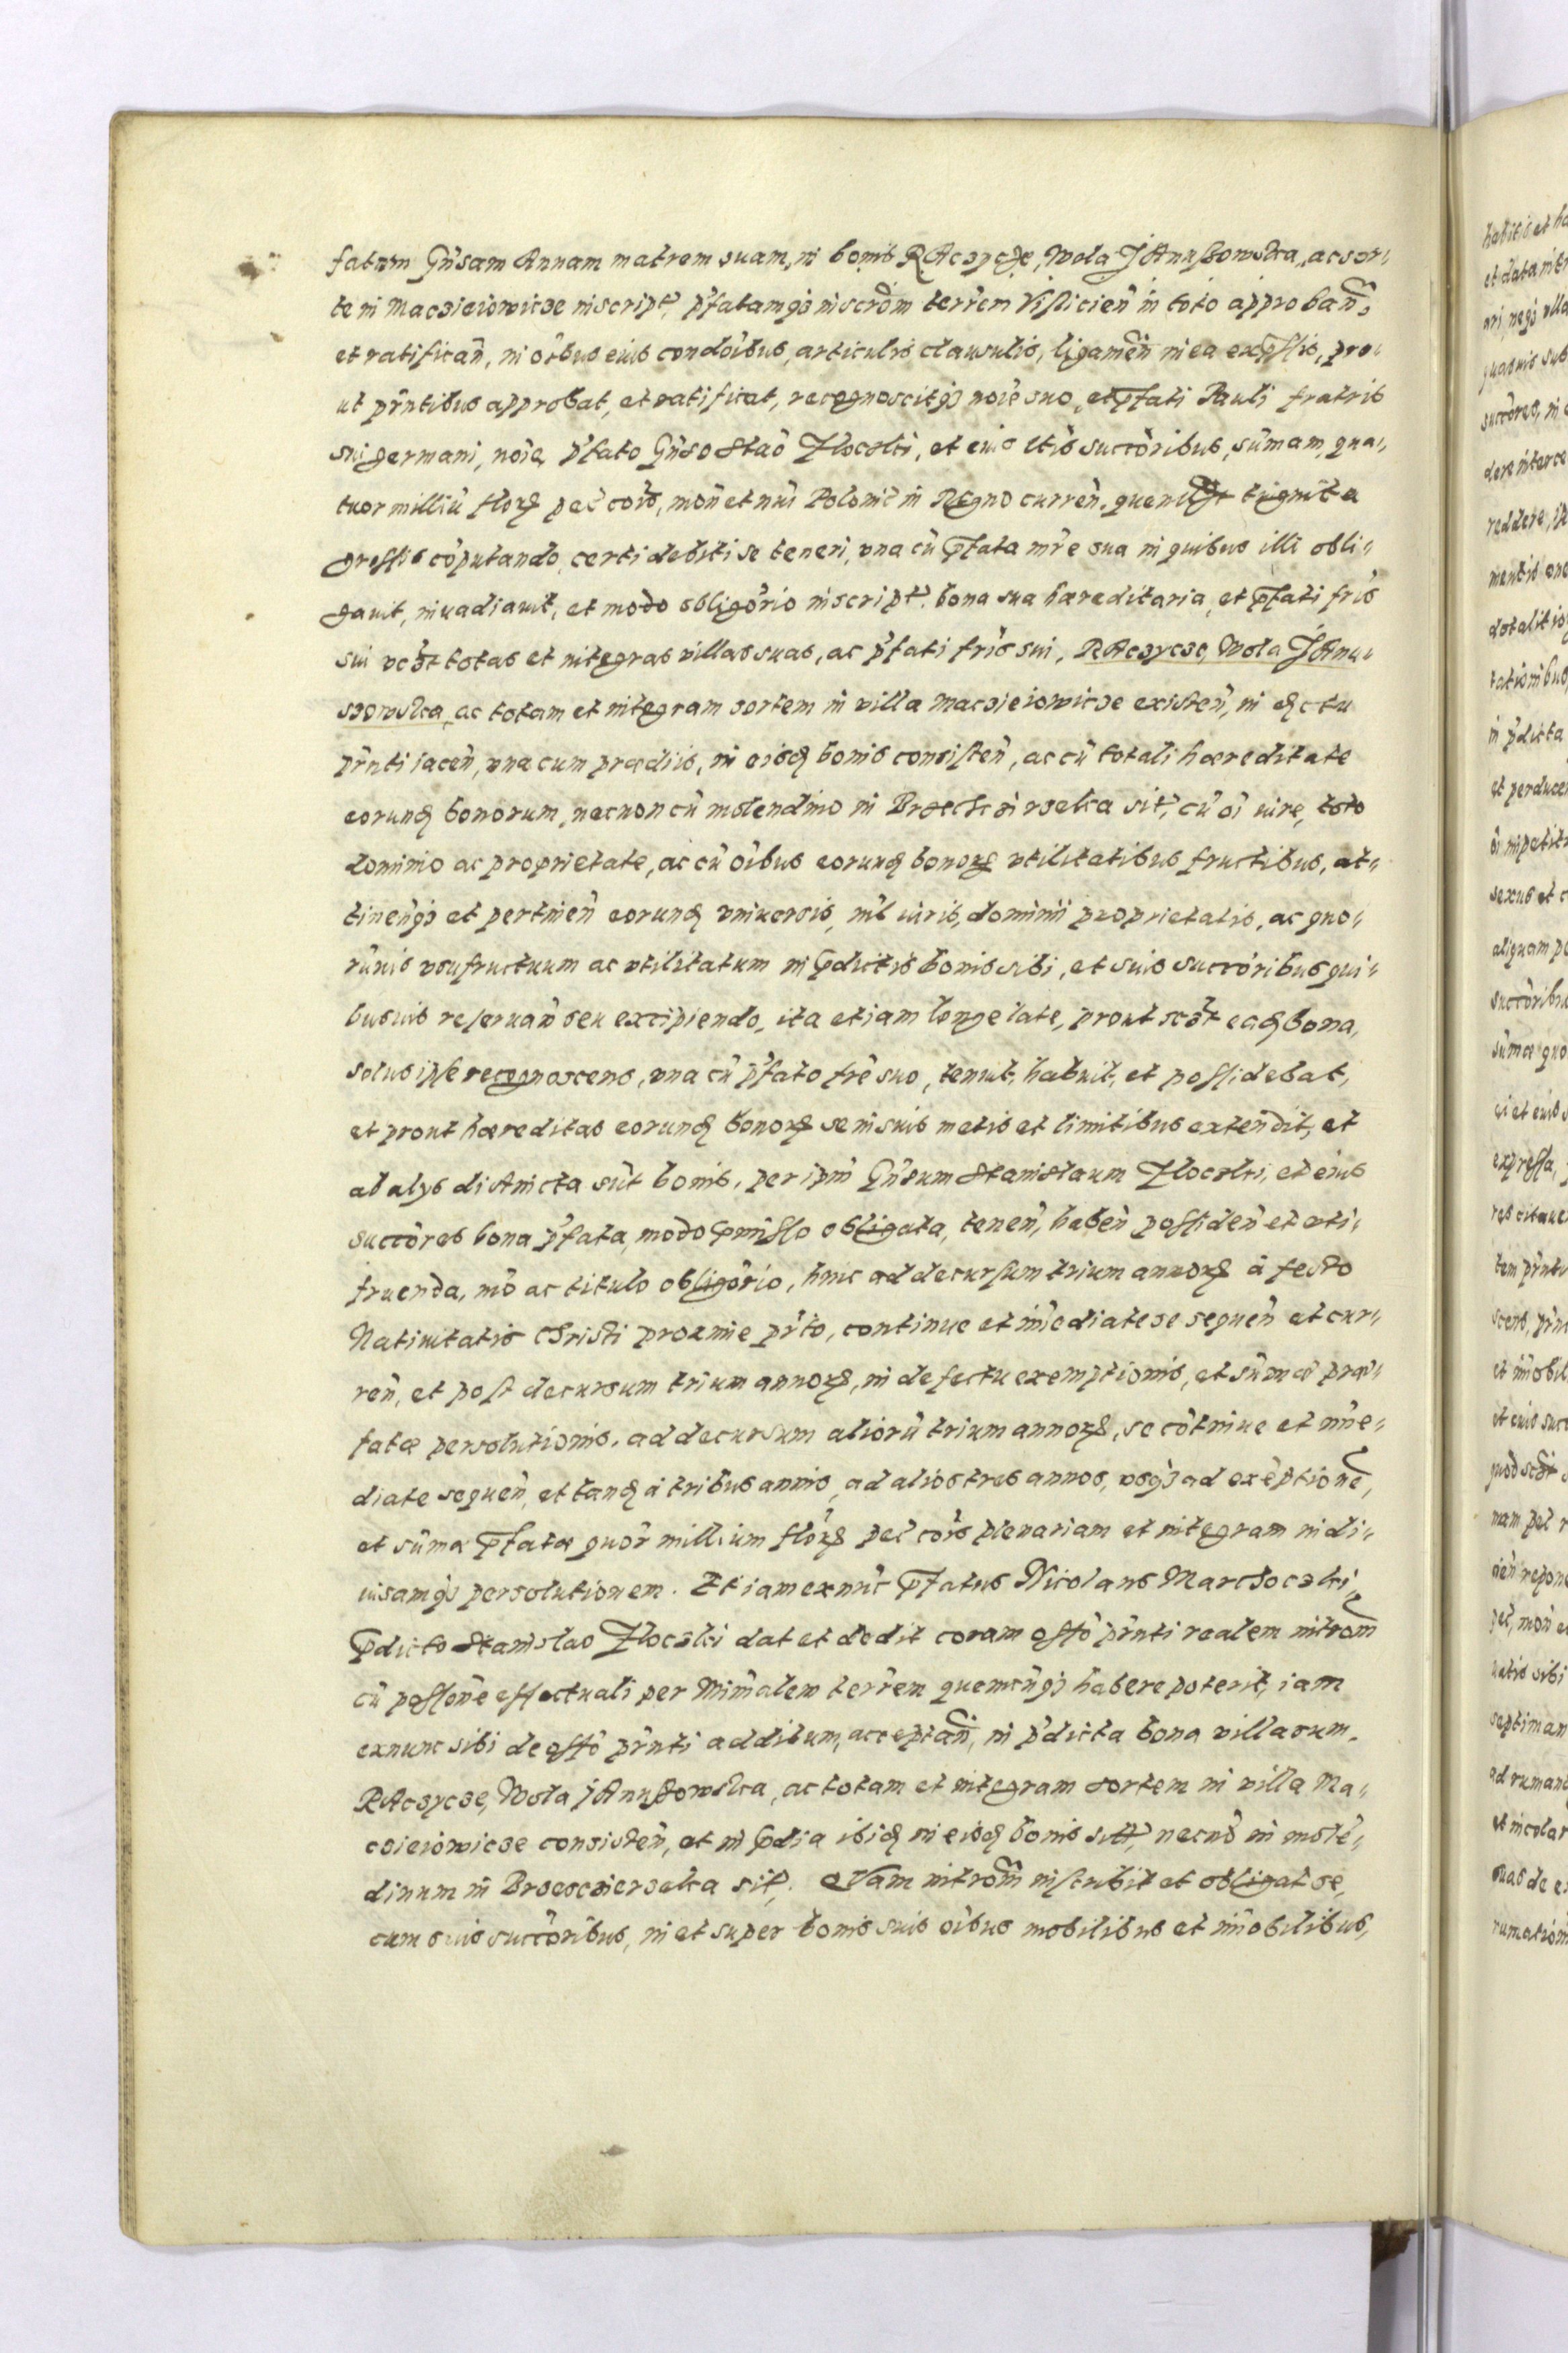 fatam Gn̄sam Annam matrem suam, in bonis RAczycze, Wola JAnuszowska, ac sor-
te in Maczieiowicze inscript. p̄fatamq3 inscr̄om terrem Visliciēn in toto approbān,
et ratificān, in oībus eius condoībus, articulis clausulis, ligamēn in ea exp̄ssis, pro-
ut pr̄ntibus approbat, et ratificat, recognoscitq3 noīe suo, et p̄fati Pauli fratris
sui germani, noīe p̄fato Gn̄so Staō Zloczki, et eius ltīs succōribus, sūmam, qua-
tuor milliū flor. pēc coīs, mōn et nūi Polonic̄ in Regno currēn. quemlibet triginta
grossis cōputando, certi debiti se teneri, vna cū p̄fata mr̄e sua in quibus illi obli-
gauit, inuadiauit, et modo obligōrio inscript. bona sua hæreditaria, et p̄fati fr̄is
sui vczt totas et integras villas suas, ac p̄fati fr̄is sui, RAczycze, Wola JAnu-
szowska, ac totam et integram sortem in villa Macziejowicze existēn, in actu
pr̄nti iacēn, vna cum prædiis, in eisdq bonis consistēn, ac cū totali hæreditate
eorundq bonorum, necnon cū molendino in Brzesczierzelka sit, cū oī iure, toto
dominio ac proprietate, ac cū oībus eorundq bonor. vtilitatibus fructibus, at-
tinēnq3 et pertinēn eorundq vniuersis, nīl iuris, dominii proprietatis, ac quo-
rūuis vsufructuum ac vtilitatum in p̄dictis bonis sibi, et suis succōribus qui-
busuis reseruān seu excipiendo, ita etiam longe late, prout sczt eadq bona,
solus ipse recognoscens, vna cū p̄fato fr̄e suo, tenuit, habuit, et possidebat,
et prout hæreditas eorundq bonor. se in suis metis et limitibus extēndit, et
ab alys distincta sūt bonis, per ip̄m Gn̄sum Stanislaum Zloczki, et eius
succōres bona p̄fata, modo p̄misso obligata, tenēn, habēn possidēn et vti-
fruenda, mō ac titulo obligōrio, hinc ad decursum trium annor. à festo
Natiuitatis Christi proxime pr̄to, continue et im̄ediate se sequēn et cur-
rēn, et post decursum trium annor., in defectu exemptionis, et sūmæ præ-
fatæ persolutionis, ad decursum aliorū trium annor., se cōtinue et im̄e-
diate sequēn, et tandq à tribus annis, ad alios tres annos, vsq3 ad exēptionē,
et sūmæ p̄fatæ quōr millium flor. pēc coīs plenariam et integram indi-
uisamq3 persolutionem. Et iam exnūc p̄fatus Nicolaus Marchoczki,
p̄dicto Stanislao Zloczki dat et dedit coram offō pr̄nti realem intrōm
cū possōne effectuali per Min̄alem terrēm quemcūq3 habere poterit, iam
exnunc sibi de offō pr̄nti additum, acceptān, in p̄dicta bona villarum.
RAczycze, Wola JAnuszowska, ac totam et integram sortem in villa Ma-
czieiowicze consistēn, et in p̄dia ibidq in eisdq bonis sitt, necnō in molē-
dinum in Brzesczierzelka sit. Quam intrōm inscribit et obligat se,
cum suis succōribus, in et super bonis suis oībus mobilibus et im̄obilibus,